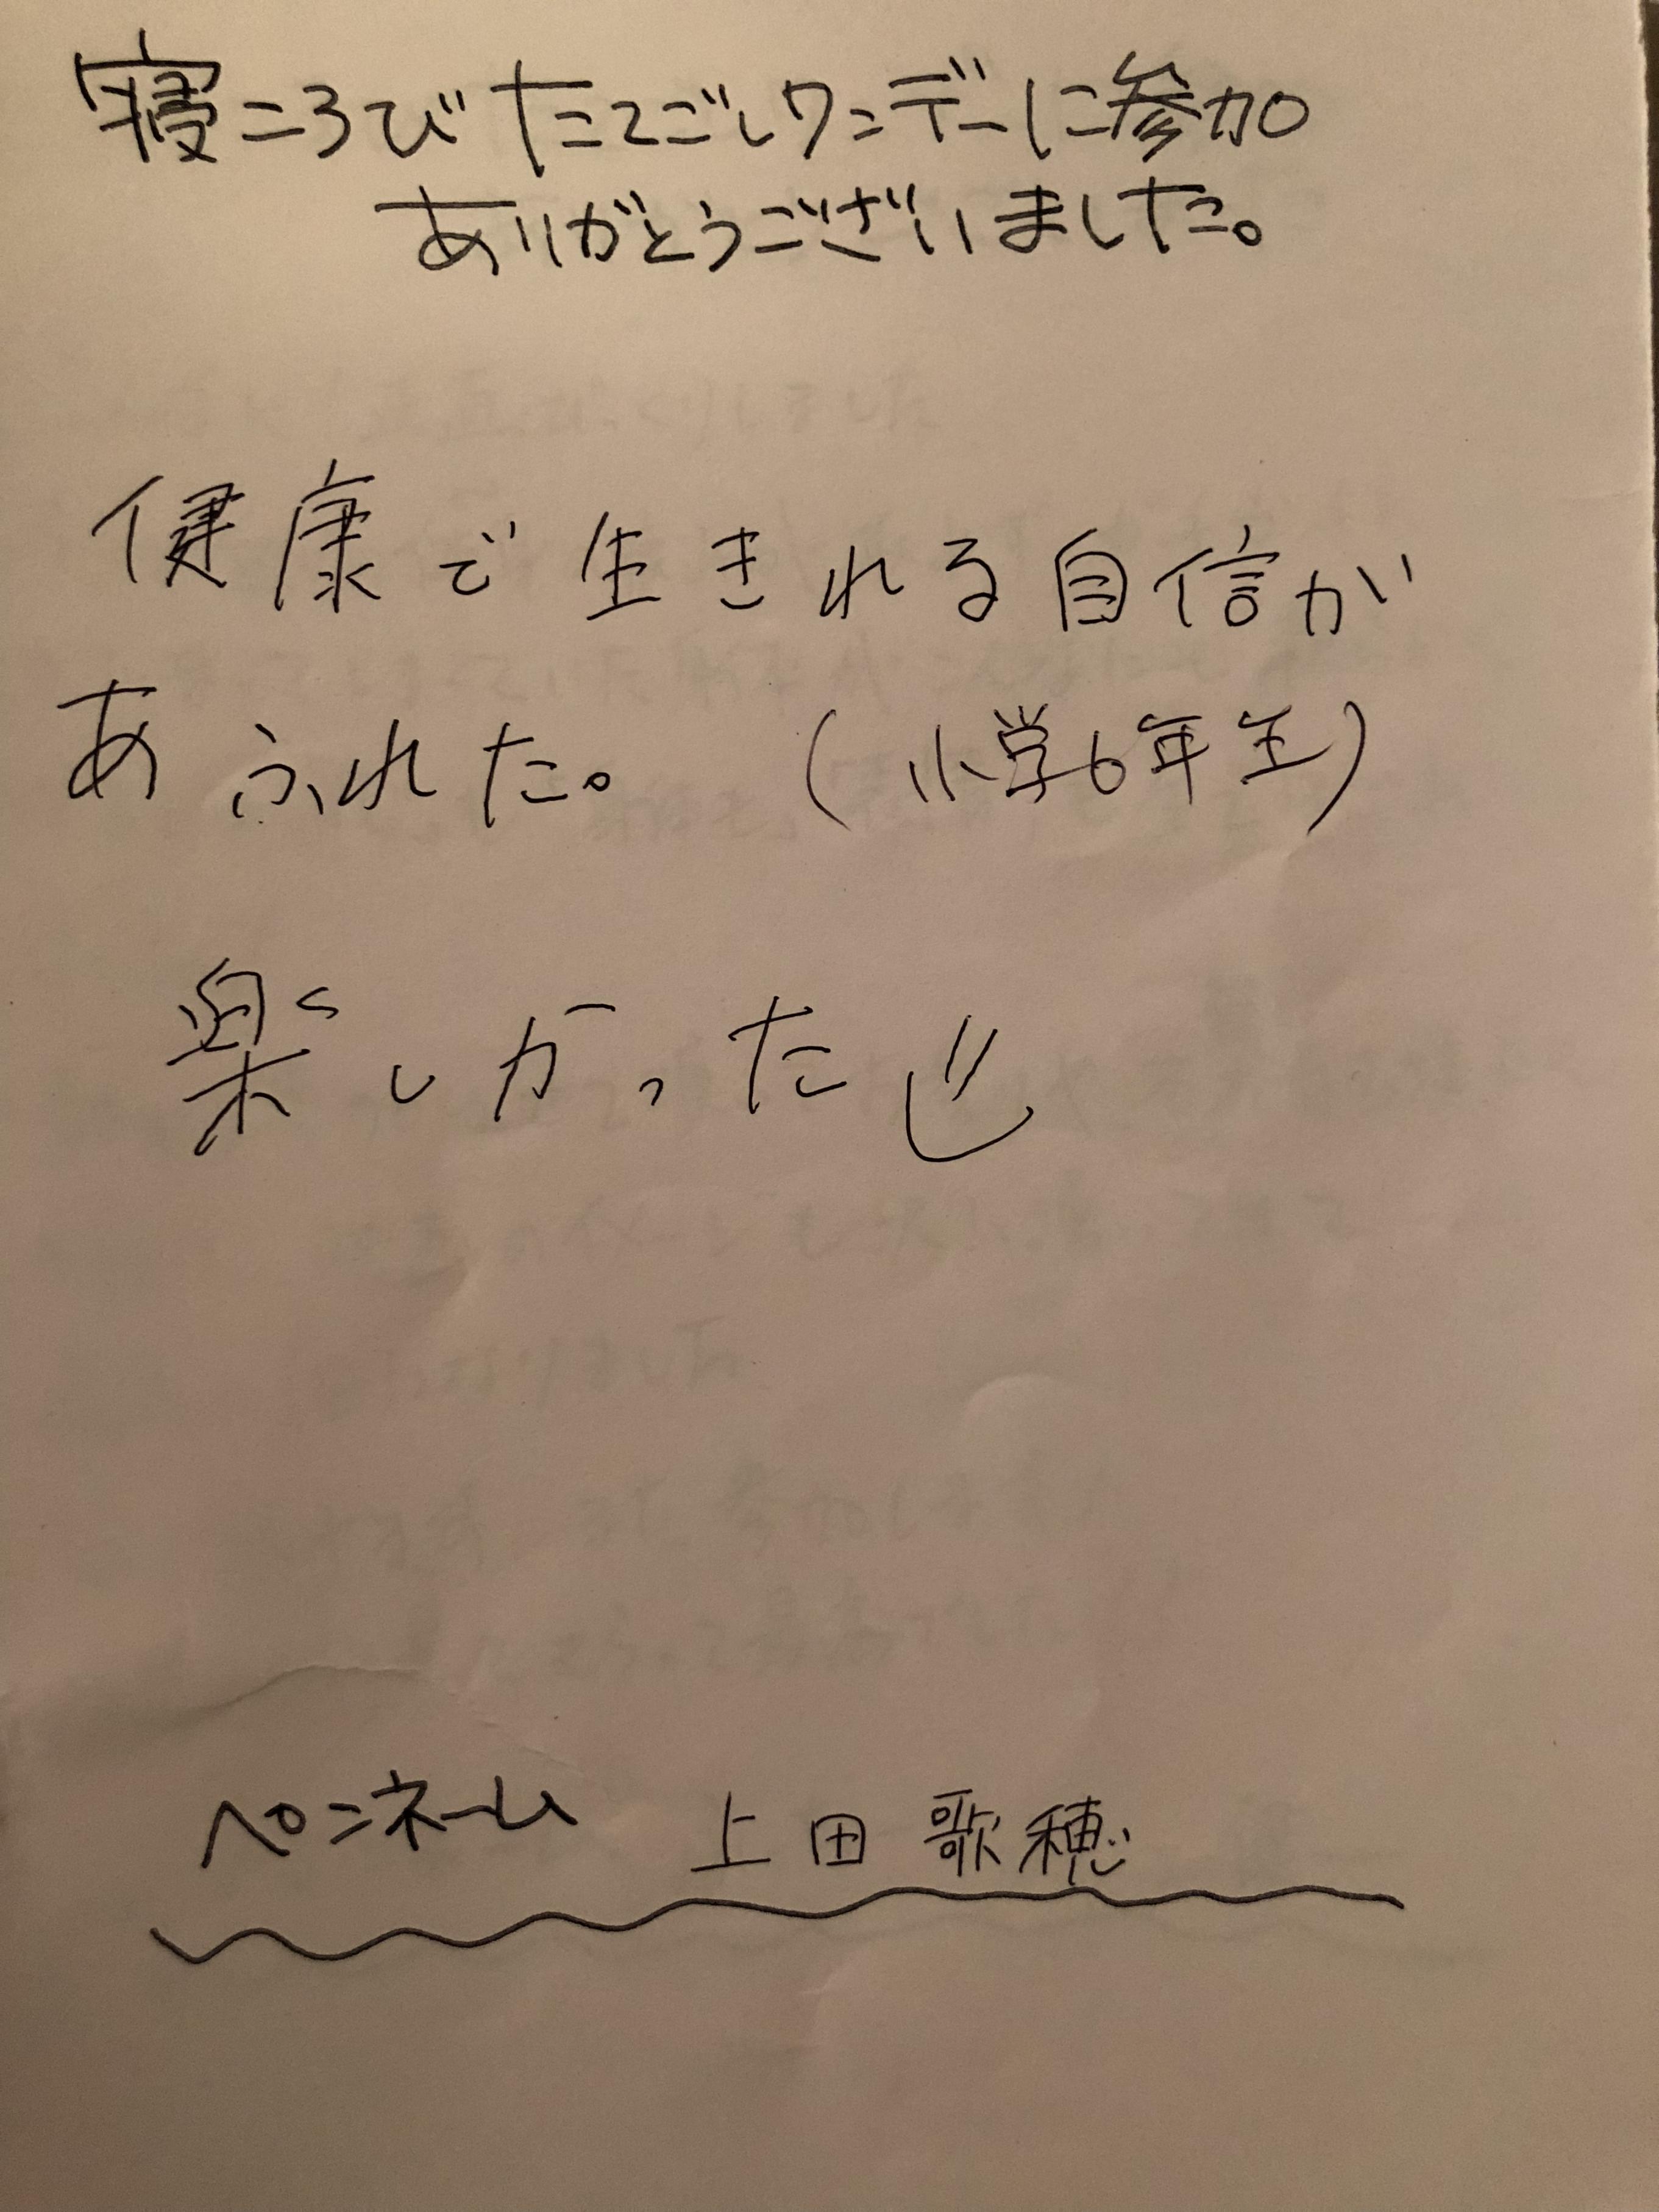 寝ころびたてごしワンデーに参加
ありがとうございました。
健康で生きれる自信が
あふれた。(小学6年生)
楽しかった
ペンネーム 上田歌穂